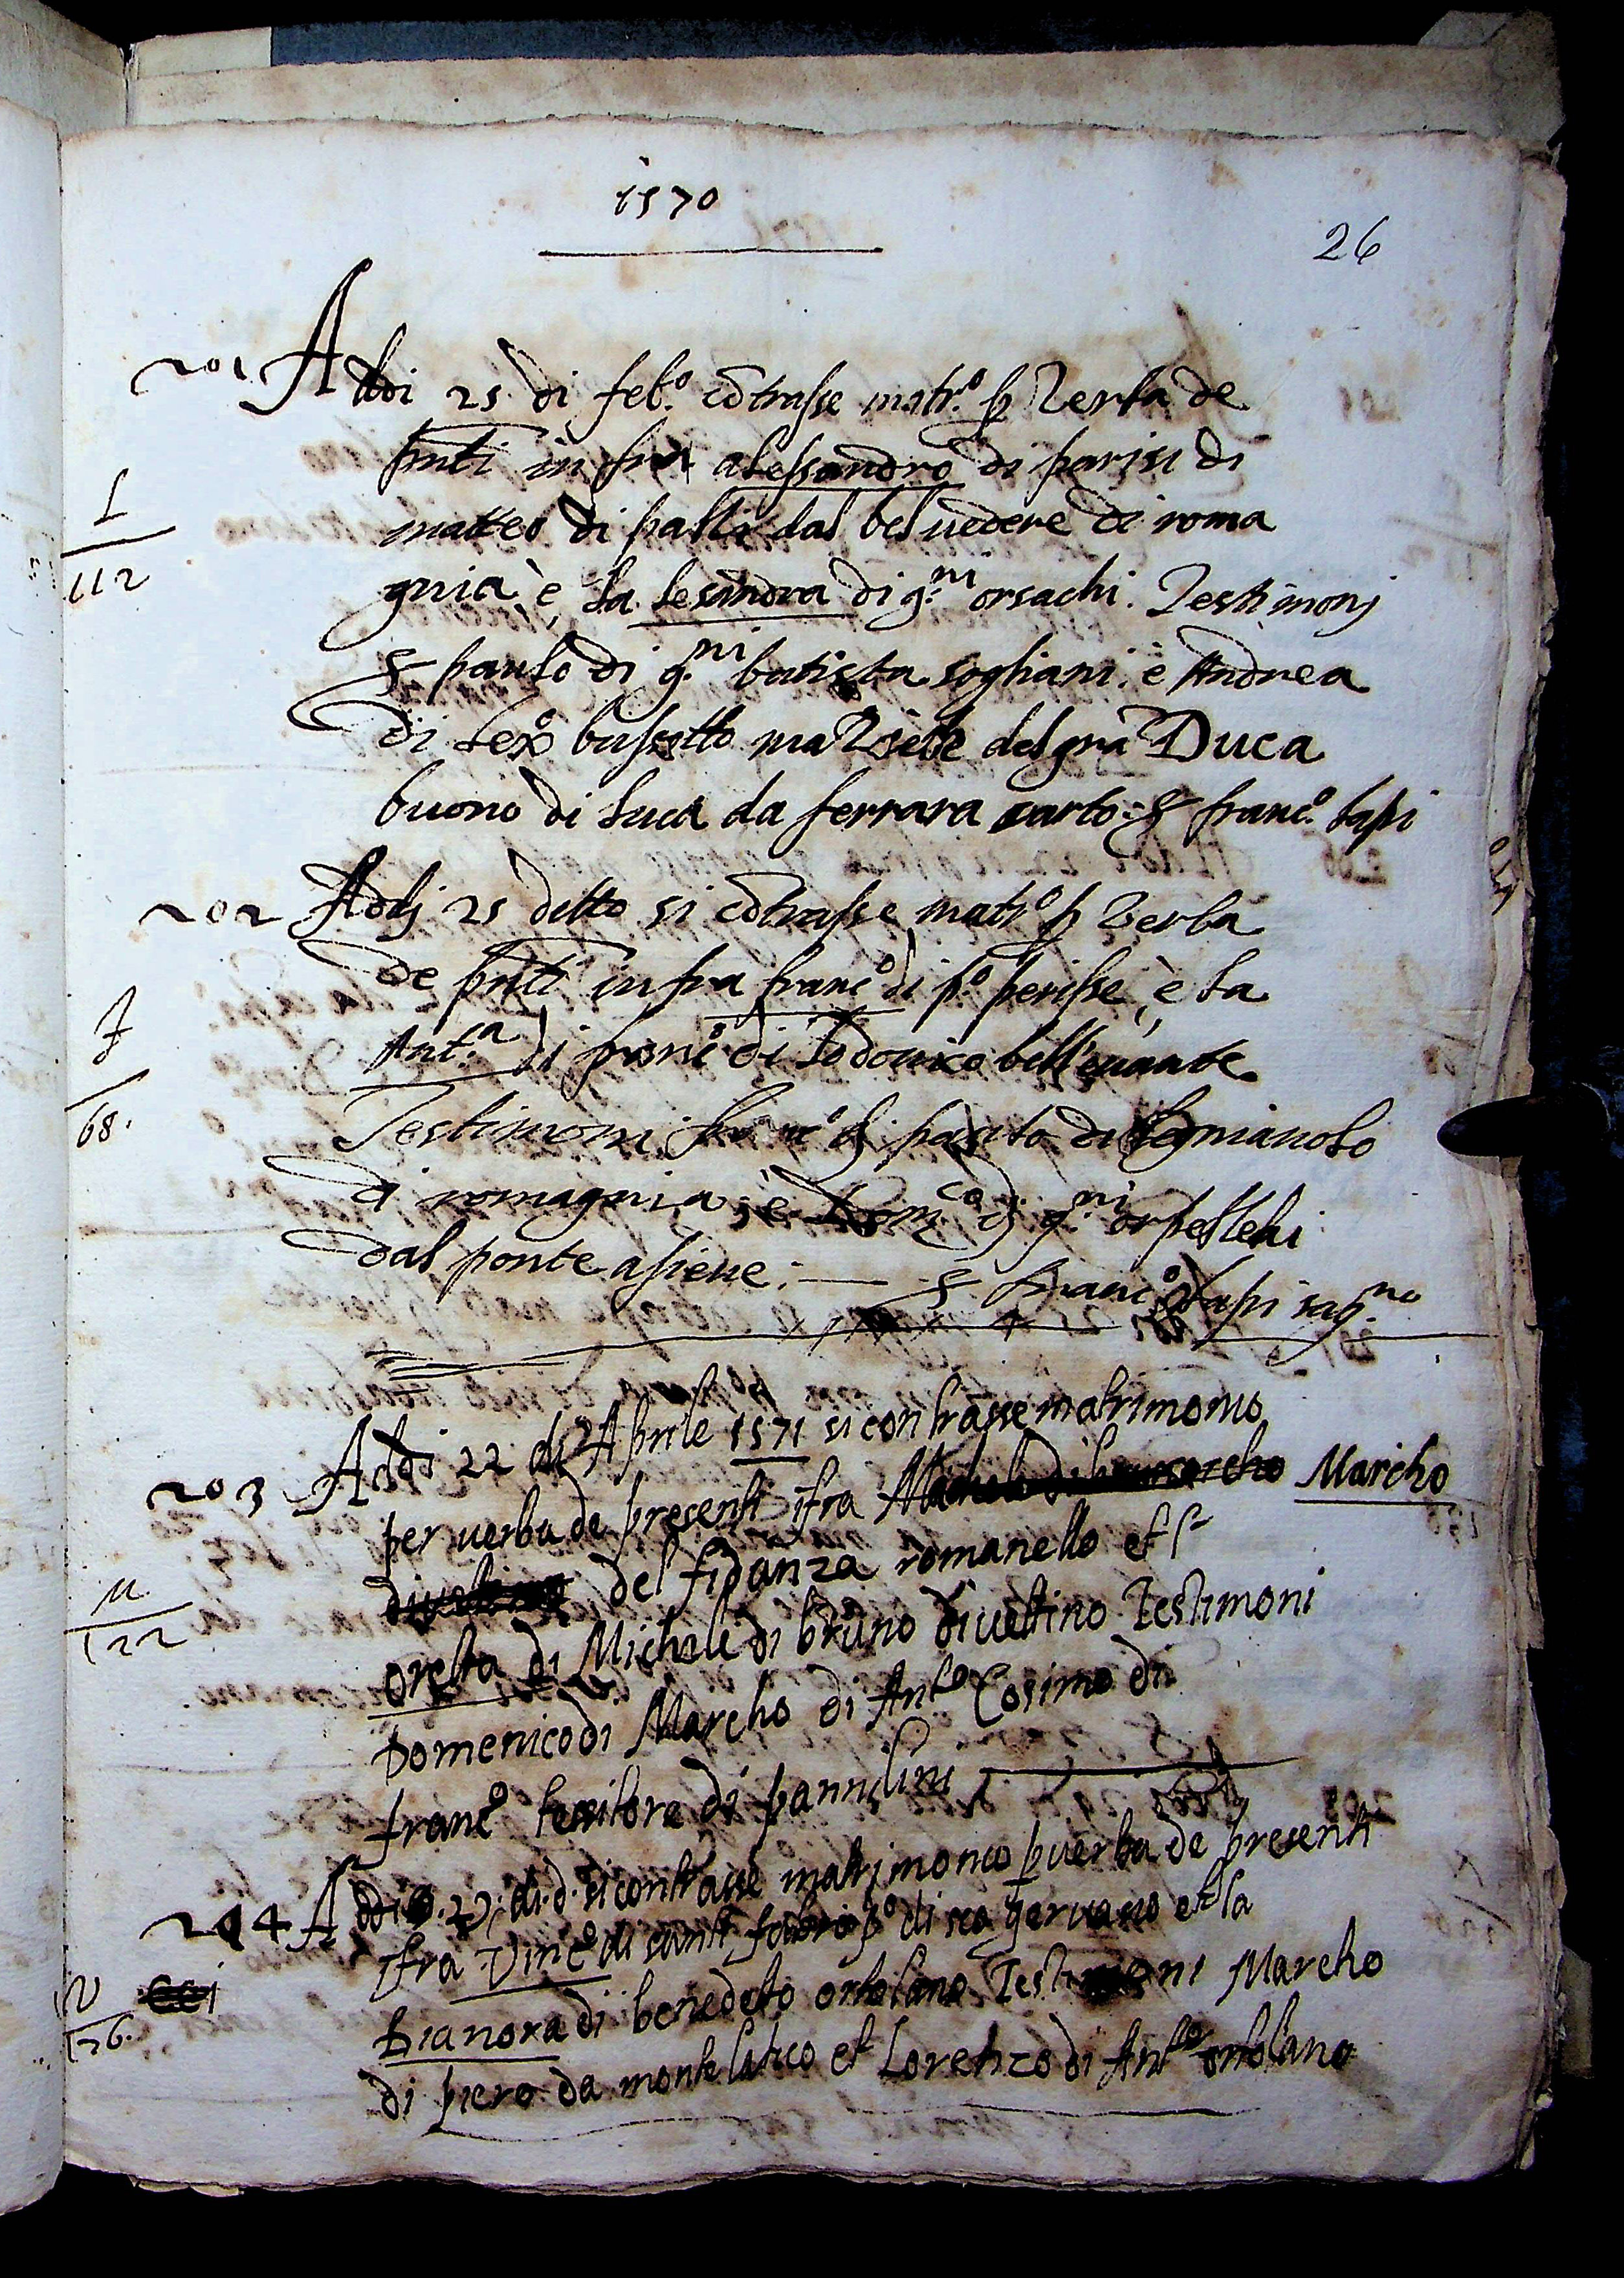 1570
26
201 Addi 25 di feb.º cōtrasse matr.º p Verba de
pnti infra alessandro di parisi di
L
112
matteo di palla dal beluedere di roma
gnia è la lesandra di g.ni orsachi. Testimonj
S paulo di g.ni batista sogliani. è Andrea
di Lexo del gra Duca
buono di Luca da ferrara sarto. S franc.º lapi
202 Addj 25 detto si cōtrasse matr.º p Verba
de pnti infra franc.º di p.º perisse, è la
F
68.
Ant.a di franc.º di Lodouico
Testimoni
di romagnia; è Dom.co dj g.ni
dal ponte asieue: — S franc.º lapi sag.no
203 Addi 22 di Aprile 1571 si contrasse matrimonio
per uerba de presenti ifra Marcho
M
122
del fidanza romanello et S.r
oretta di Michele di bruno diuettino Testimoni
Domenico di Marcho di Ant.º Cosimo di
franc.º tessitore di pannilini
204 Addi 22. di d. si contrasse matrimonio p uerba de presenti
ifra Vinc.º di santi p.º di sco geruaso et la
V
126.
Dianora di benedetto ortolano Testimoni Marcho
di piero da montelatico et Lorenzo di Ant.º ortolano